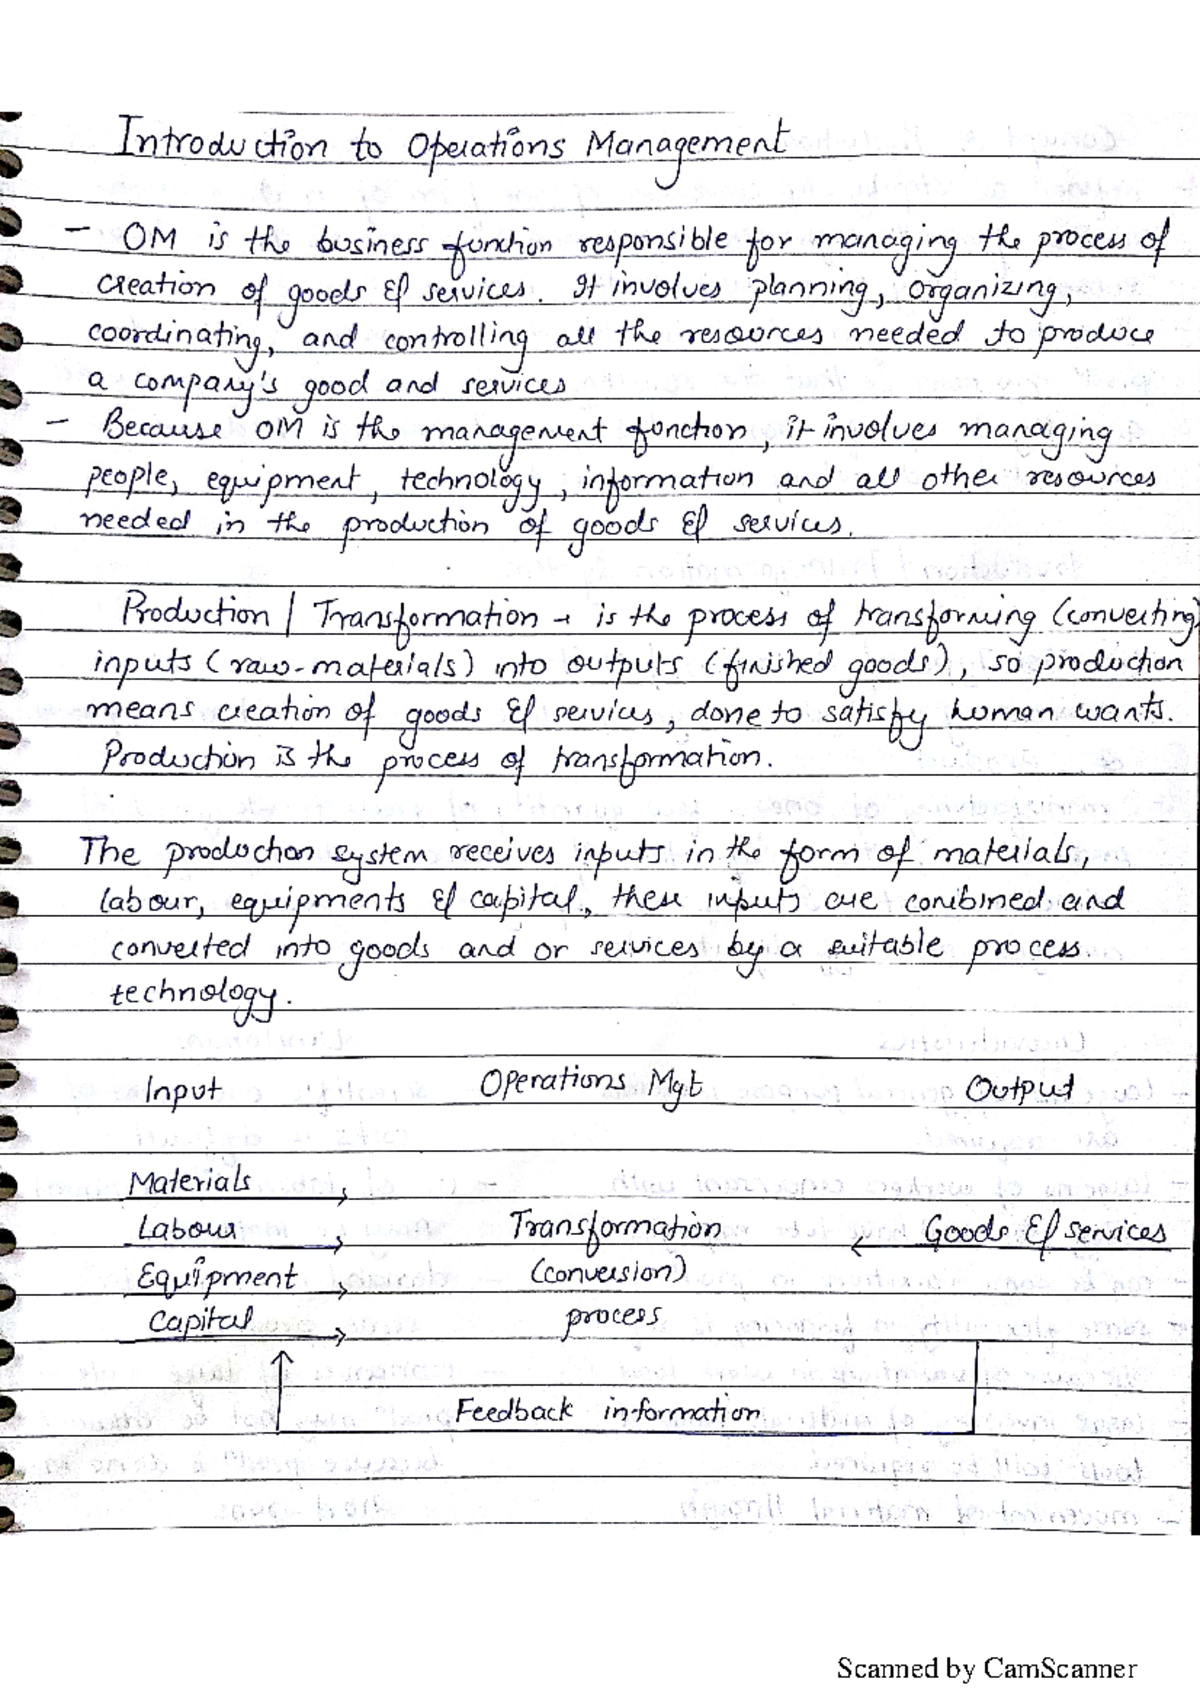 Introduction to Operations Management
- OM is the business function responsible for managing the process of
creation of goods & services. It involves planning, organizing,
coordinating, and controlling all the resources needed to produce
a company's good and services
- Because OM is the management function, it involves managing
people, equipment, technology, information and all other resources
needed in the production of goods & services.
Production / Transformation → is the process of transforming (converting)
inputs (raw-materials) into outputs (finished goods), so production
means creation of goods & services, done to satisfy human wants.
Production is the process of transformation.
The production system receives inputs in the form of materials,
labour, equipments & capital, these inputs are combined and
converted into goods and or services by a suitable process
technology.
Input Operations Mgt Output
Materials
Labour Transformation Goods & services
Equipment (conversion)
Capital process
Feedback information
Scanned by CamScanner